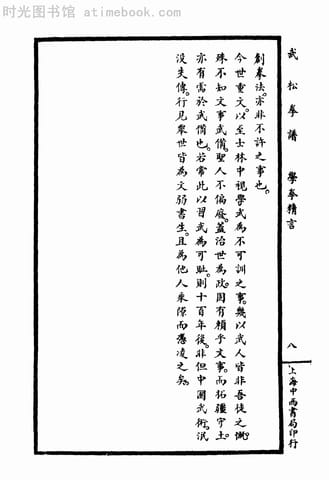 时光图书馆 atimebook.com
武松拳譜 學拳精言 八 上海中西書局印行
創拳法。亦非不許之事也。
今世重文。以至士林中視學武為不可訓之事。幾以武人皆非吾徒之慨。
殊不知文事武備。聖人不偏廢。蓋治世為政。固有賴乎文事。而拓疆守土。
亦有需於武備也。若常此以習武為可耻。則十百年後。非但中國武術。泯
沒失傳。行見衆世皆為文弱書生。且為他人乘隙而憑凌之矣。